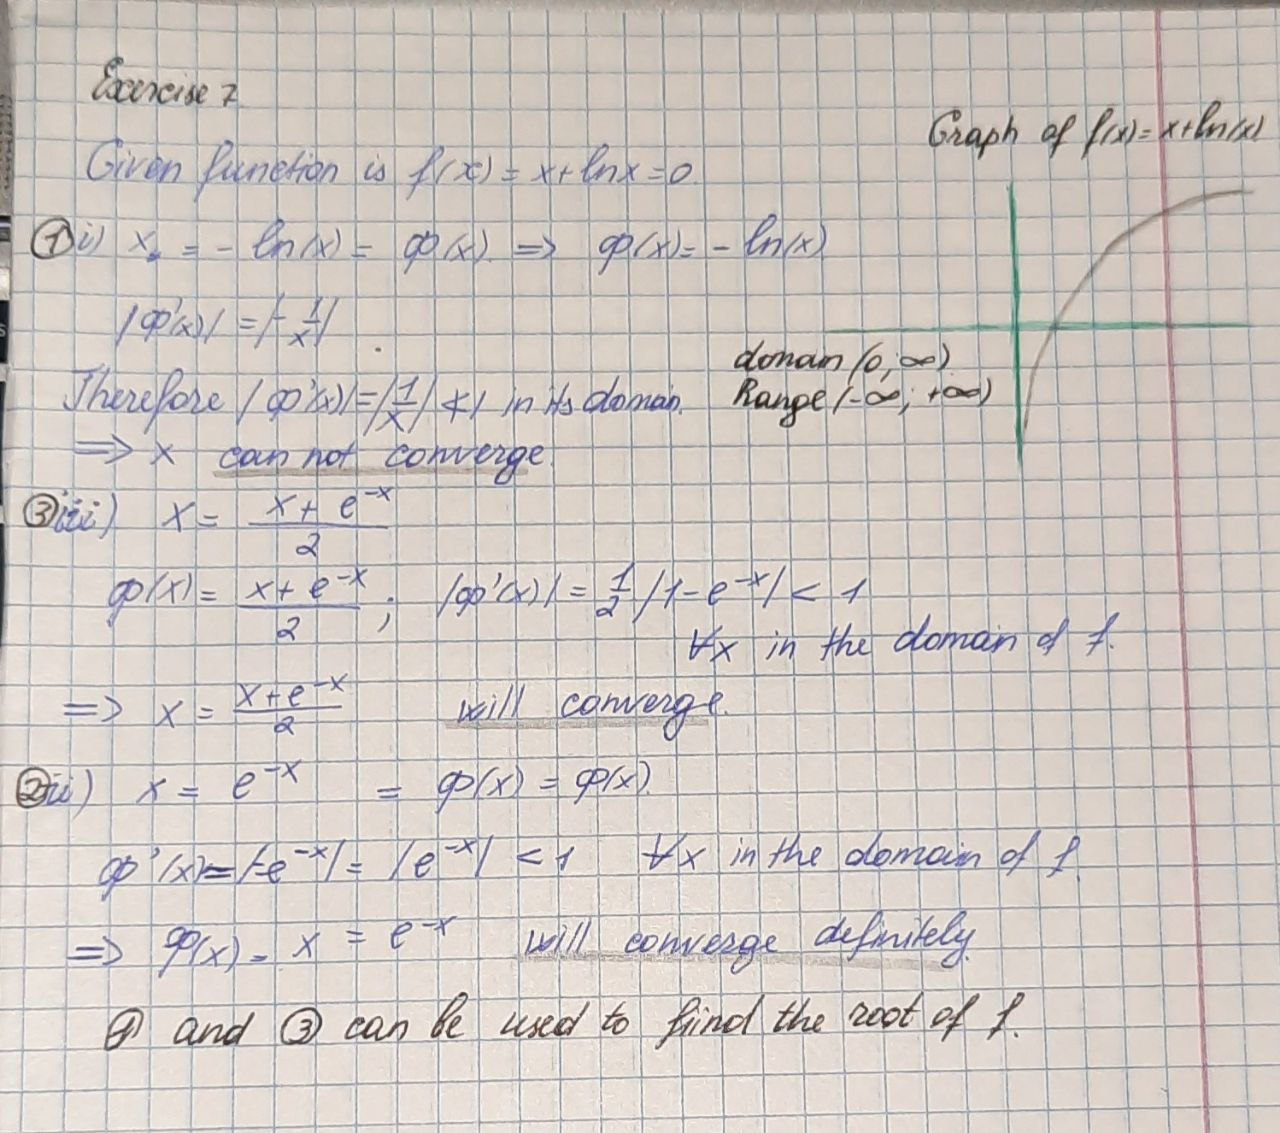 Exercise 7
Graph of f(x)= x+ln(x)
Given function is f(x) = x+ lnx=0
① i) x = - ln(x) = φ(x) => φ(x)= - ln(x)
|φ'(x)| = |- 1/x|
domain (0, ∞)
Range (-∞; +∞)
Therefore |φ'(x)|=|1/x| ≮ 1 in its domain.
=> x can not converge
③ iii) x = (x + e^-x)/2
φ(x) = (x + e^-x)/2 ; |φ'(x)| = 1/2 |1-e^-x| < 1
∀x in the domain of f.
=> x = (x+e^-x)/2 will converge.
② ii) x = e^-x = φ(x) = φ(x).
φ'(x)=|-e^-x| = |e^-x| < 1 ∀x in the domain of f.
=> φ(x) = x = e^-x will converge definitely.
and ③ can be used to fiind the root of f.